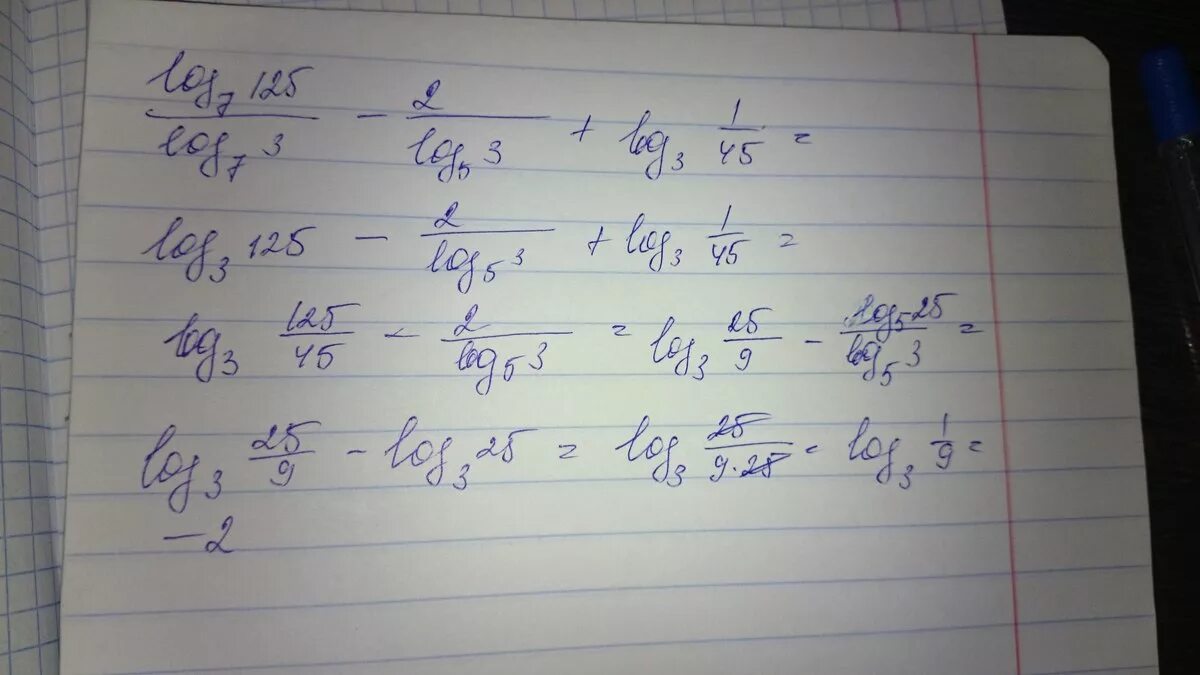 log₇ 125 / log₇ 3 − 2 / log₅ 3 + log₃ 1/45 =
log₃ 125 − 2 / log₅ 3 + log₃ 1/45 =
log₃ 125/45 − 2 / log₅ 3 = log₃ 25/9 − log₅ 25 / log₅ 3 =
log₃ 25/9 − log₃ 25 = log₃ 25/9·25 = log₃ 1/9 =
−2